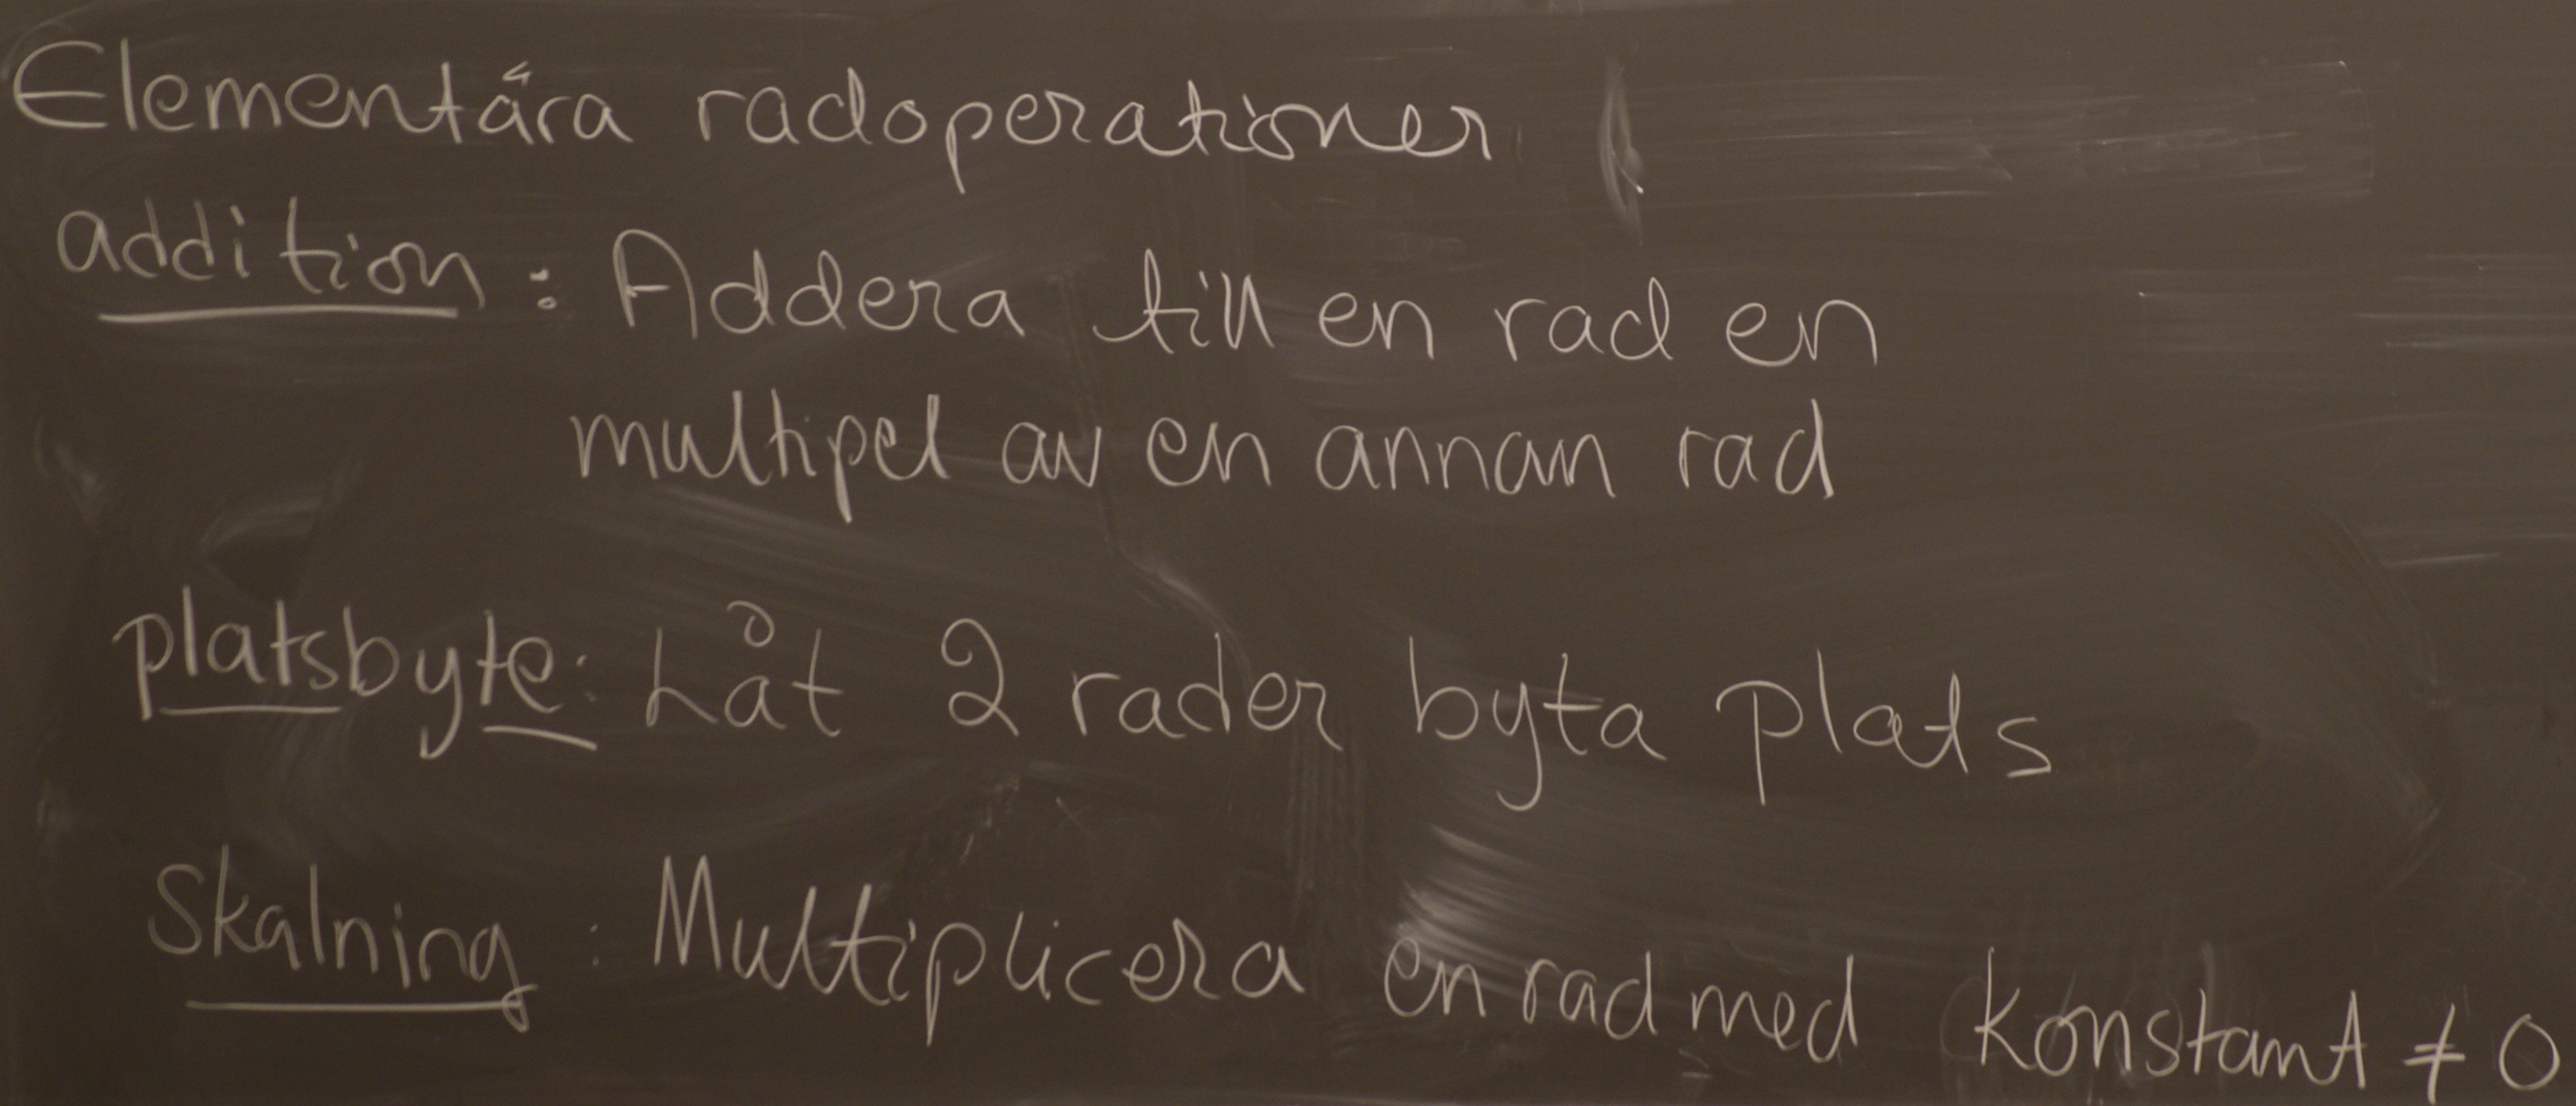 Elementära radoperationer
addition: Addera till en rad en
multipel av en annan rad
platsbyte: Låt 2 rader byta plats
Skalning: Multiplicera en rad med konstant ≠ 0